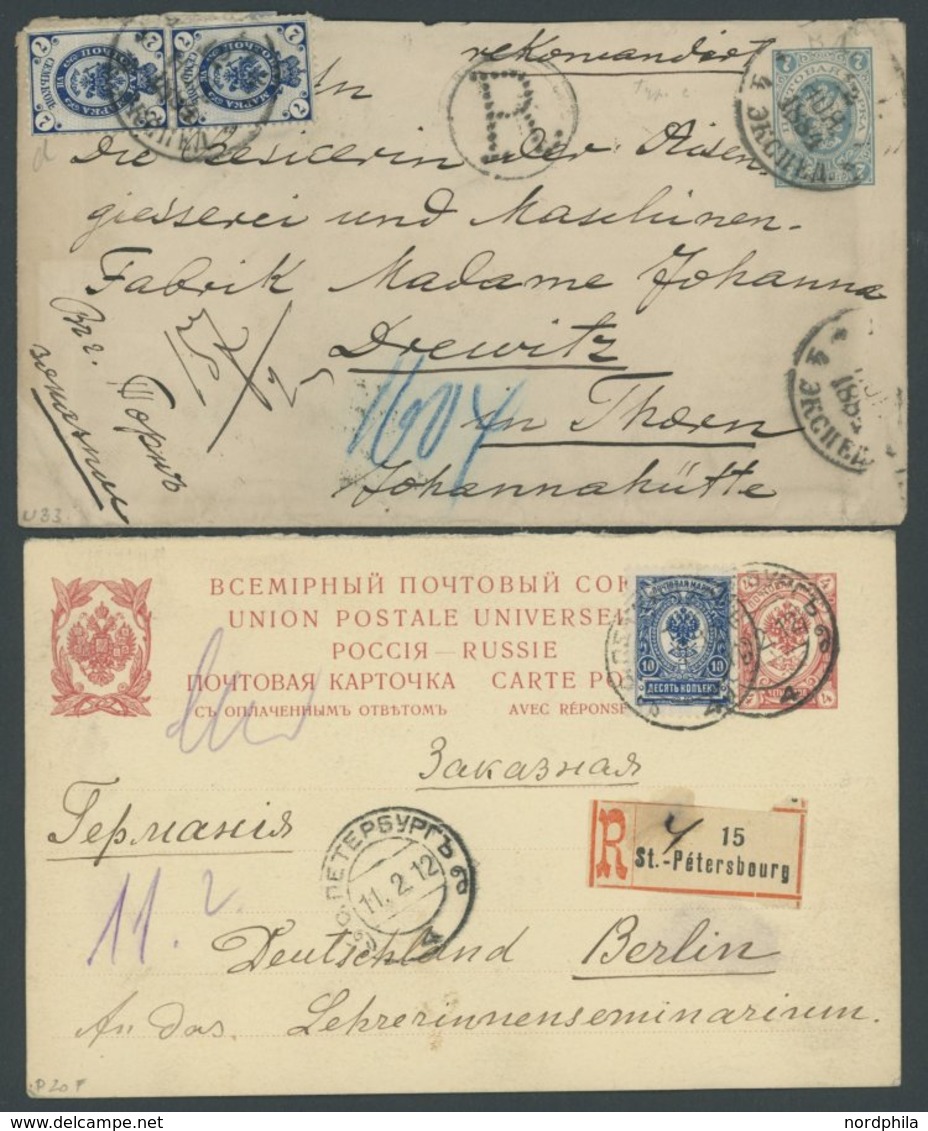 rekomandirt
R.
Die Besitzerin der Eisen-
giesserei und Maschinen-
Fabrik Madame Johanna
Drewitz
in Thorn
Johannahütte
Въ г. Торнъ
заказное
1884
ЭКСПЕД
1884
ЭКСПЕД
7 7
МАРКА
U 33
ВСЕМІРНЫЙ ПОЧТОВЫЙ СОЮ
UNION POSTALE UNIVERSE
РОССІЯ — RUSSIE
ПОЧТОВАЯ КАРТОЧКА CARTE PO
СЪ ОПЛАЧЕННЫМЪ ОТВѢТОМЪ AVEC RÉPONSE
ПОЧТОВАЯ МАРКА
10 10
ДЕСЯТЬ КОПѢЕКЪ
Заказная
Германія
С.ПЕТЕРБУРГЪ
11.2.12
R 15
St.-Pétersbourg
11.
Deutschland Berlin
An das Lehrerinnenseminarium.
P 20 F
nordphila